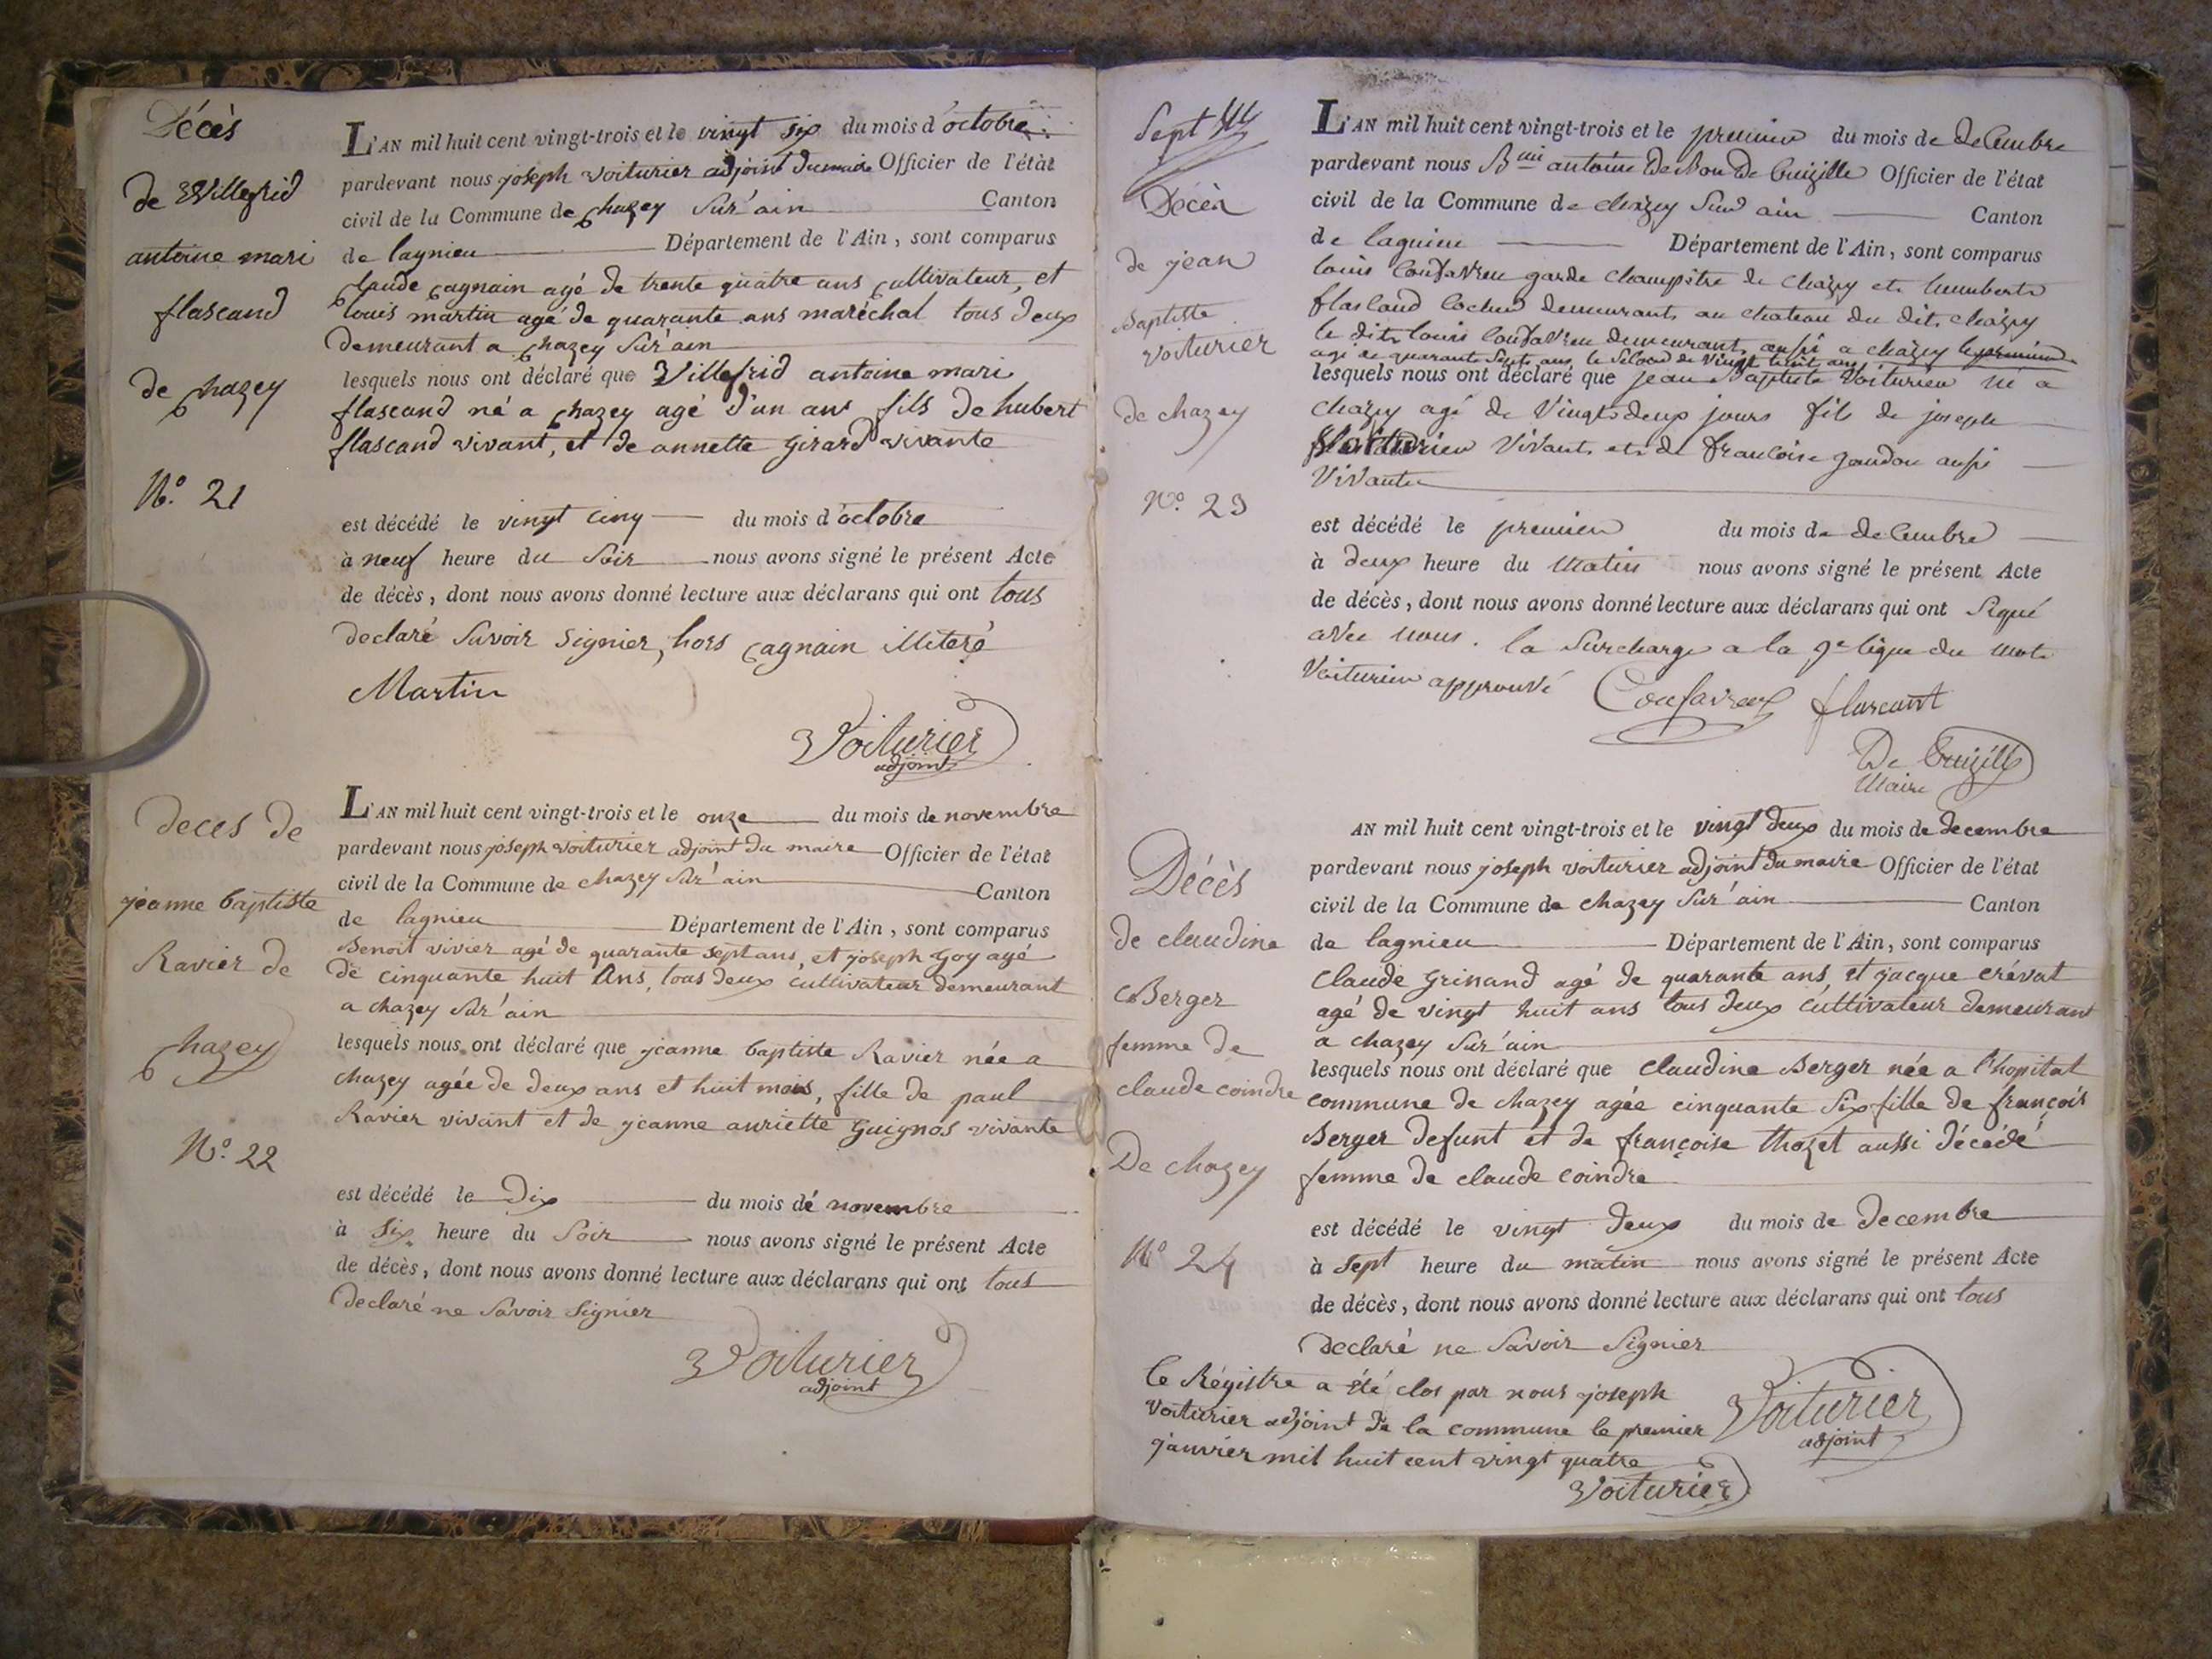 Décès
de Willefrid
antoine mari
flascand
de chazey
N.° 21
L'AN mil huit cent vingt-trois et le vingt six du mois d'octobre
pardevant nous joseph voiturier adjoint du maire Officier de l'état
civil de la Commune de chazey Sur'ain Canton
de lagnieu Département de l'Ain, sont comparus
claude cagnain agé de trente quatre ans cultivateur, et
louis martin agé de quarante ans maréchal tous deux
demeurant a chazey Sur'ain
lesquels nous ont déclaré que Willefrid antoine mari
flascand né a chazey agé d'un ans fils de hubert
flascand vivant, et de annette girard vivante
est décédé le vingt cinq du mois d'octobre
à neuf heure du Soir nous avons signé le présent Acte
de décès, dont nous avons donné lecture aux déclarans qui ont tous
declaré Savoir Signier, hors cagnain illiteré
Martin
Voiturier
adjoint
deces de
jeanne baptiste
Ravier de
chazey
N.° 22
L'AN mil huit cent vingt-trois et le onze du mois de novembre
pardevant nous joseph voiturier adjoint du maire Officier de l'état
civil de la Commune de chazey Sur'ain Canton
de lagnieu Département de l'Ain, sont comparus
Benoit vivier agé de quarante sept ans, et joseph Goy agé
de cinquante huit Ans, tous deux cultivateur demeurant
a chazey Sur'ain
lesquels nous ont déclaré que jeanne baptiste Ravier née a
chazey agée de deux ans et huit mois, fille de paul
Ravier vivant et de jeanne auriette Guignos vivante
est décédé le Dix du mois dé novembre
à Six heure du Soir nous avons signé le présent Acte
de décès, dont nous avons donné lecture aux déclarans qui ont tous
declaré ne Savoir Signier
Voiturier
adjoint
Sept
Décès
de jean
Baptiste
voiturier
de chazey
N.° 23
L'AN mil huit cent vingt-trois et le premier du mois de decembre
pardevant nous antoine De Officier de l'état
civil de la Commune de chazey Sur ain Canton
de lagnieu Département de l'Ain, sont comparus
louis Confavreu garde champêtre de chazey et humbert
flascand cocher demeurant au chateau du dit chazey
le dit louis Confavreu demeurant aussi a chazey le premier
agé de quarante Sept ans le Second de vingt huit ans
lesquels nous ont déclaré que jean Baptiste Voiturier né a
chazey agé de Vingt deux jours fils de joseph
Voiturier Vivant et de francoise gaudon aussi
Vivante
est décédé le premier du mois de decembre
à deux heure du Matin nous avons signé le présent Acte
de décès, dont nous avons donné lecture aux déclarans qui ont Signé
avec nous. la Surcharge a la 9e ligne du mot
Voiturier approuvé Confavreux flascant
Maire
Décès
de claudine
Berger
femme de
claude coindre
De chazey
N° 24
AN mil huit cent vingt-trois et le vingt deux du mois de decembre
pardevant nous joseph voiturier adjoint du maire Officier de l'état
civil de la Commune de chazey Sur'ain Canton
de lagnieu Département de l'Ain, sont comparus
claude Grinand agé de quarante ans, et jacque crévat
agé de vingt huit ans tous deux cultivateur demeurant
a chazey Sur'ain
lesquels nous ont déclaré que claudine Berger née a l'hopital
commune de chazey agée cinquante Six fille de françois
Berger defunt et de françoise thozet aussi décédé
femme de claude coindre
est décédé le vingt deux du mois de decembre
à Sept heure du matin nous avons signé le présent Acte
de décès, dont nous avons donné lecture aux déclarans qui ont tous
declaré ne Savoir Signier
le Régistre a été clos par nous joseph
voiturier adjoint de la commune le premier
janvier mil huit cent vingt quatre
Voiturier
adjoint
Voiturier